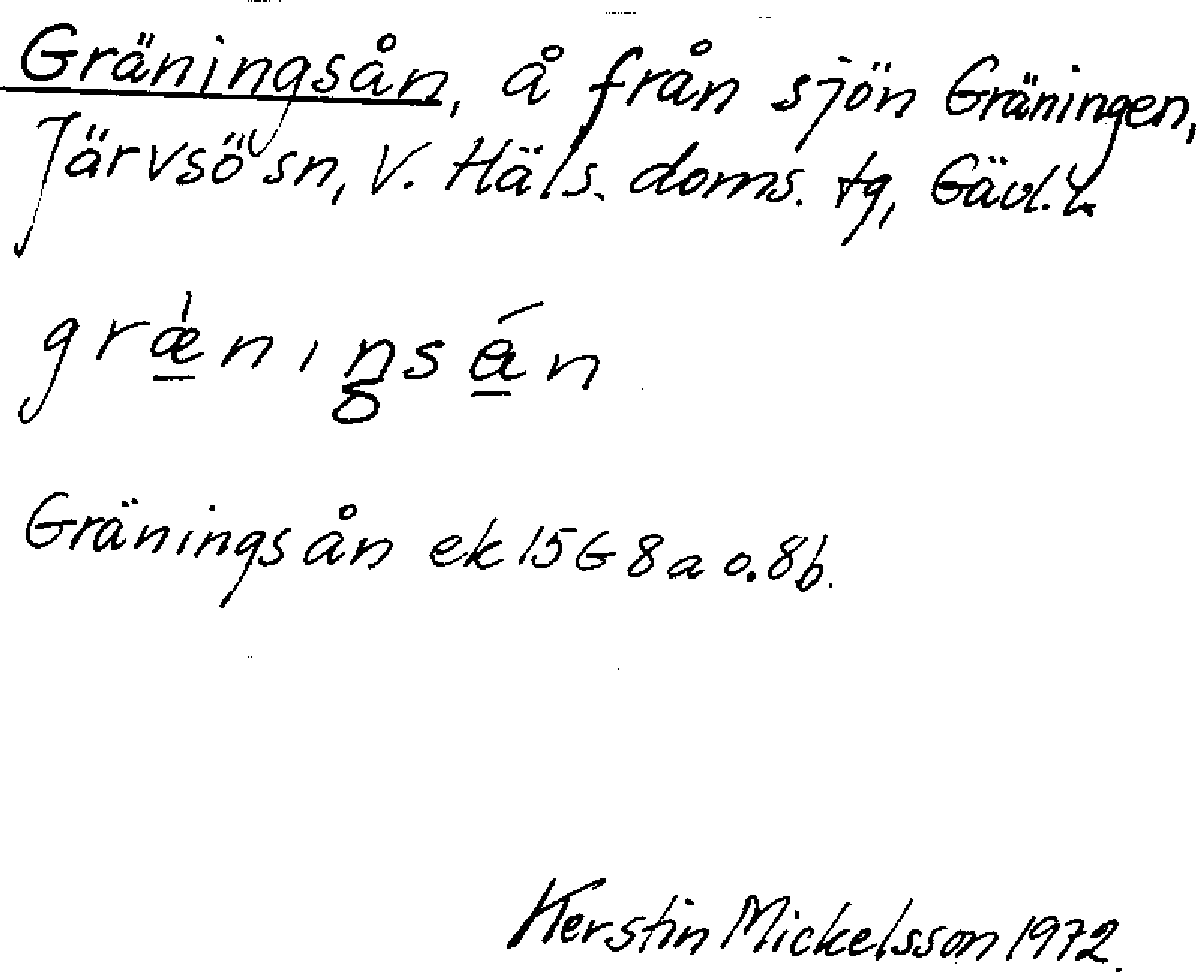 Gräningsån, å från sjön Gräningen,
Järvsö sn, V. Häls. doms. tg, Gävl. l.
grǽniŋsán
Gräningsån ek 15G 8a o. 8b.
Kerstin Mickelsson 1972.